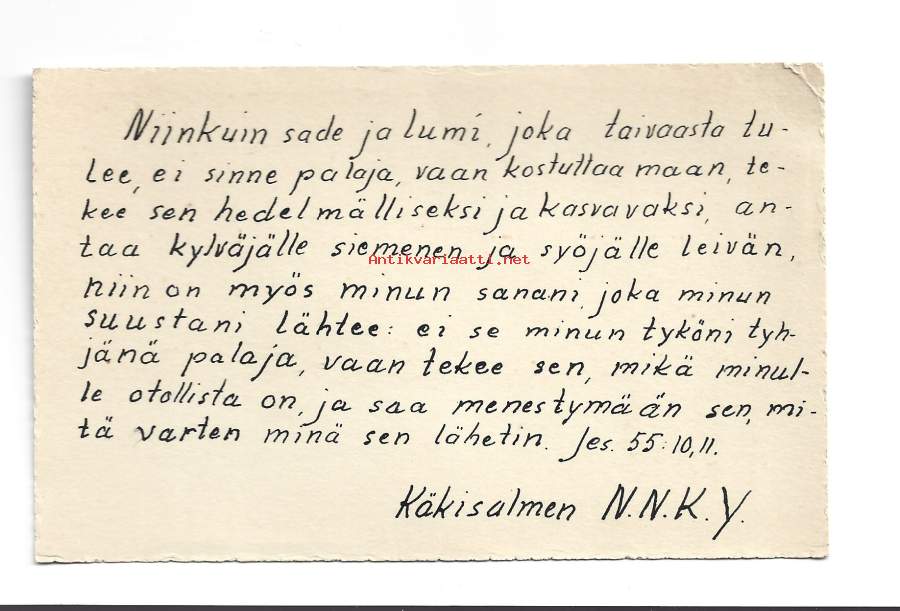 Niinkuin sade ja lumi, joka taivaasta tu-
lee, ei sinne palaja, vaan kostuttaa maan, te-
kee sen hedelmälliseksi ja kasvavaksi, an-
taa kylväjälle siemenen ja syöjälle leivän,
Antikvariaatti.net
niin on myös minun sanani, joka minun
suustani lähtee: ei se minun tyköni tyh-
jänä palaja, vaan tekee sen, mikä minul-
le otollista on, ja saa menestymään sen, mi-
tä varten minä sen lähetin. Jes. 55:10,11.
Käkisalmen N.N.K.Y.